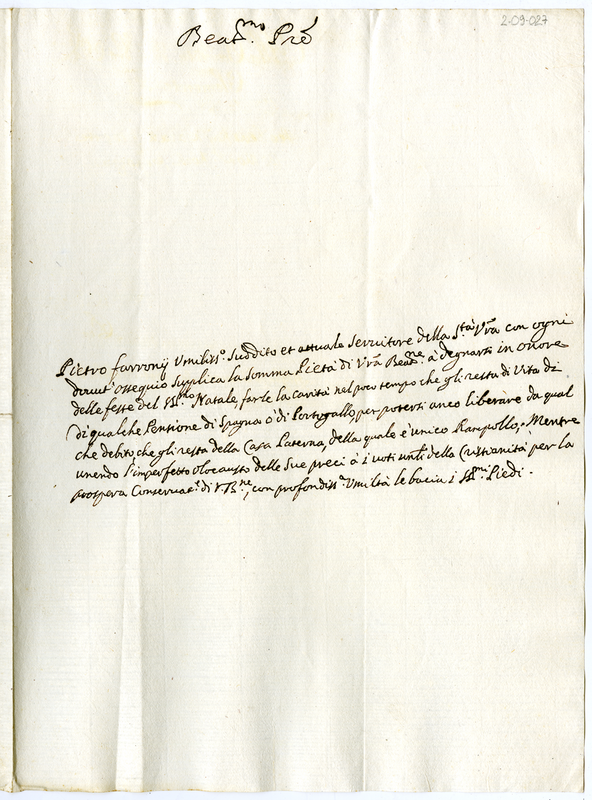 2-09-027
Beat.mo Pre
Pietro farronij Umiliss.o Suddito et attuale Servitore della S.tà V.ra con ogni
dovut'ossequio Supplica la Somma Pietà di V.ra Beat.ne, à degnarsi in onore
delle feste del SS.mo Natale, farle la carità nel poco tempo che gli resta di Vita di
di qualche Pensione di Spagna ò di Portogallo, per potersi anco liberare da qual
che debito, che gli resta della Casa Paterna, della quale è unico Rampollo, Mentre
unendo l'imperfetto olocausto delle Sue preci à i voti unĩli della Cristianità per la
prospera Conservaz.e di V. B.ne, con profondiss.a Umiltà le bacia i SS.mi Piedi.